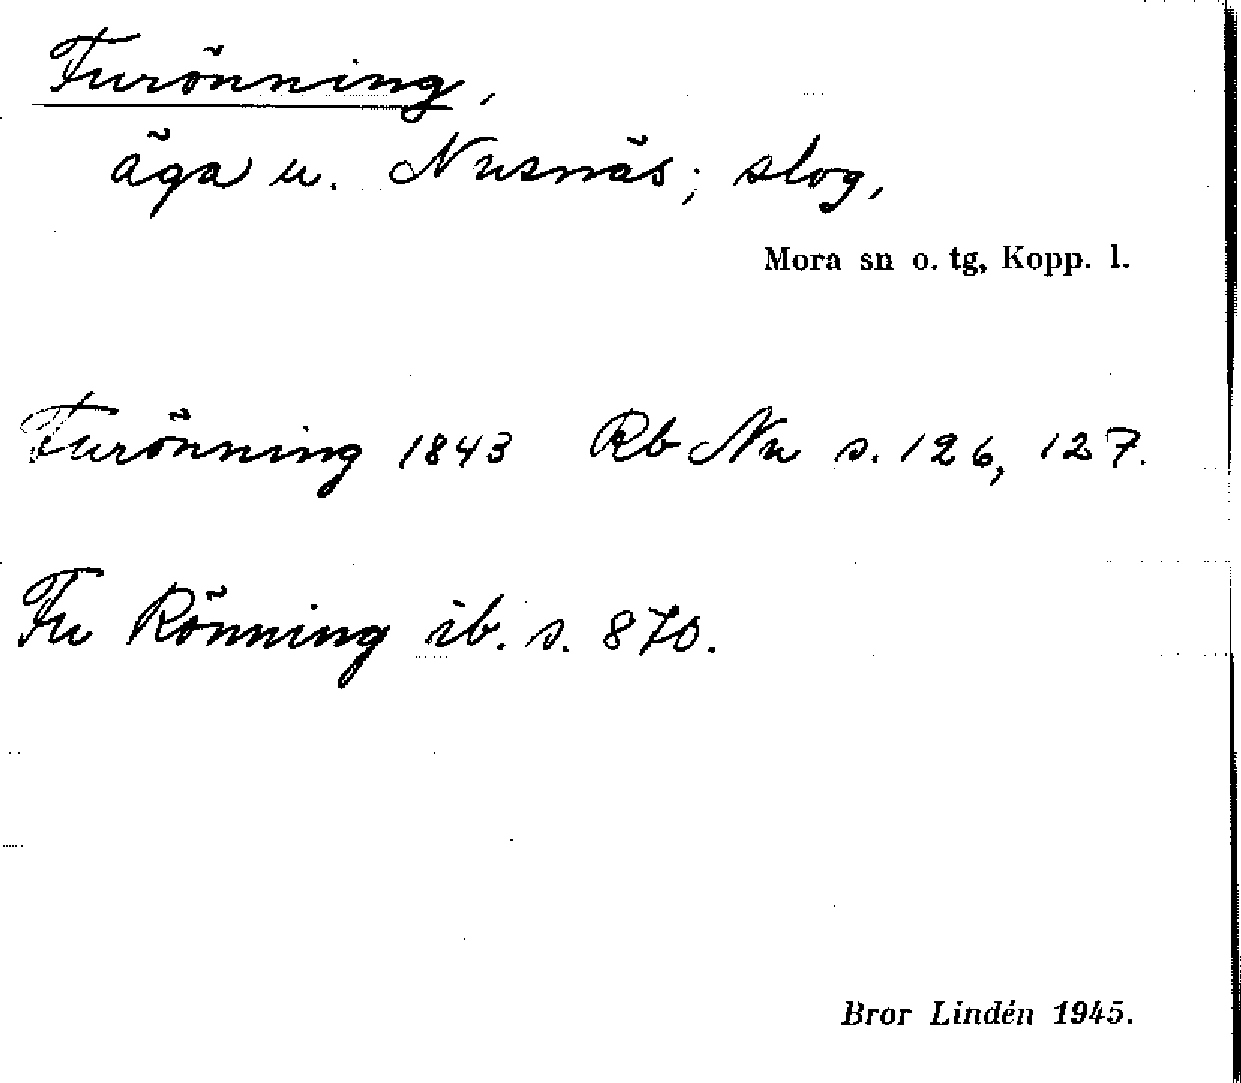 Furönning,
äga u. Nusnäs; slog,
Mora sn o. tg, Kopp. l.
Furönning 1843 Rb Nu s. 126, 127.
Fu Rönning ib. s. 870.
Bror Lindén 1945.